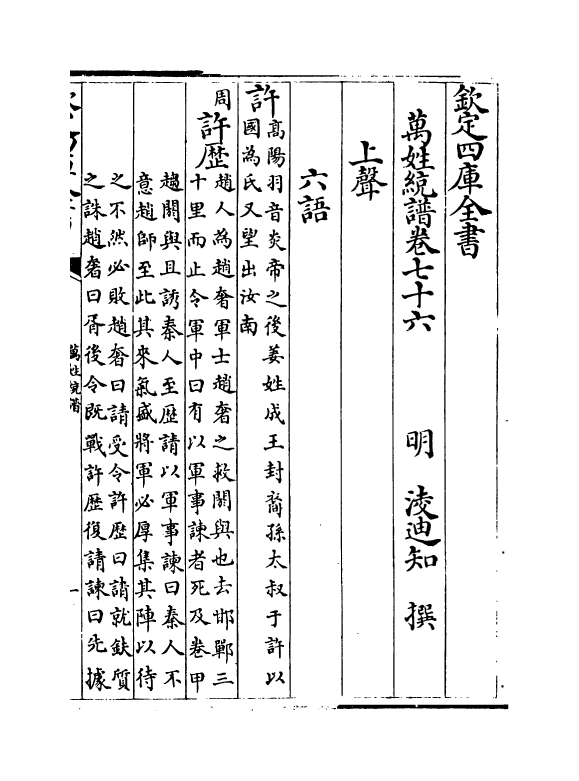 欽定四庫全書
萬姓統譜卷七十六　　明　淩迪知　撰
上聲
六語
許
高陽羽音炎帝之後姜姓成王封裔孫太叔于許以
國為氏又望出汝南
周
許歴
趙人為趙奢軍士趙奢之救閼與也去邯鄲三
十里而止令軍中曰有以軍事諫者死及卷甲
趨閼與且誘秦人至歴請以軍事諫曰秦人不
意趙師至此其來氣盛將軍必厚集其陣以待
之不然必敗趙奢曰請受令許歴曰請就鈇質
之誅趙奢曰胥後令既戰許歴復請諫曰先據
萬姓統譜
一